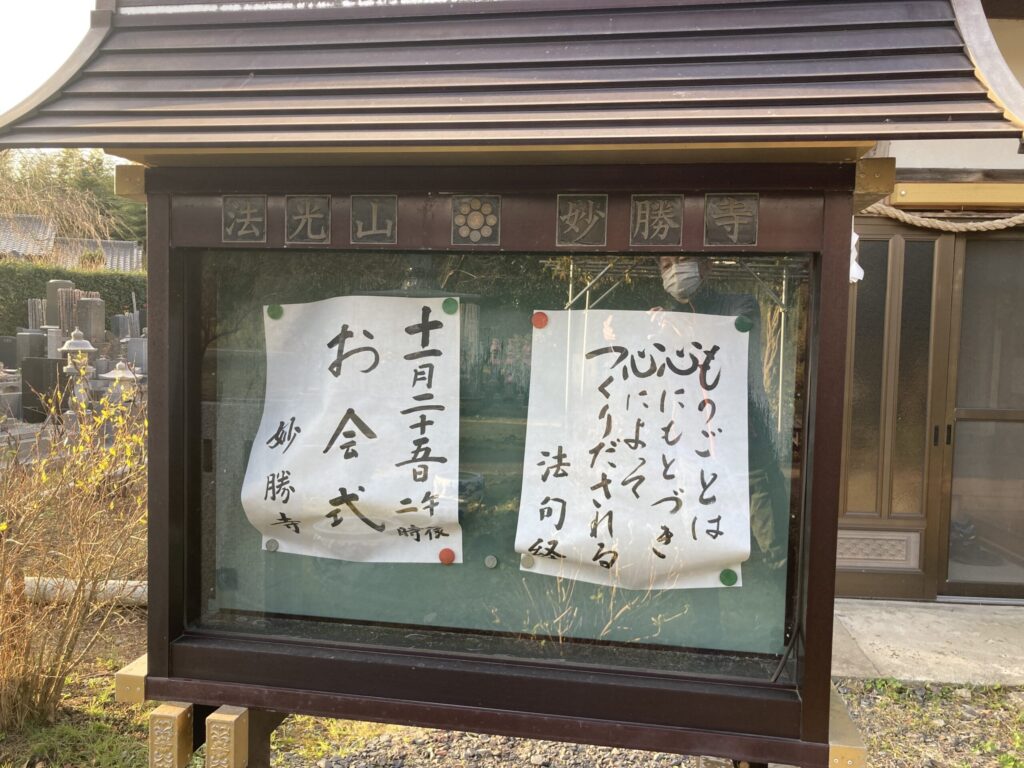 法光山 妙勝寺
ものごとは
心にもとづき
心によって
つくりだされる
法句経
十一月二十五日 午後二時
お会式
妙勝寺